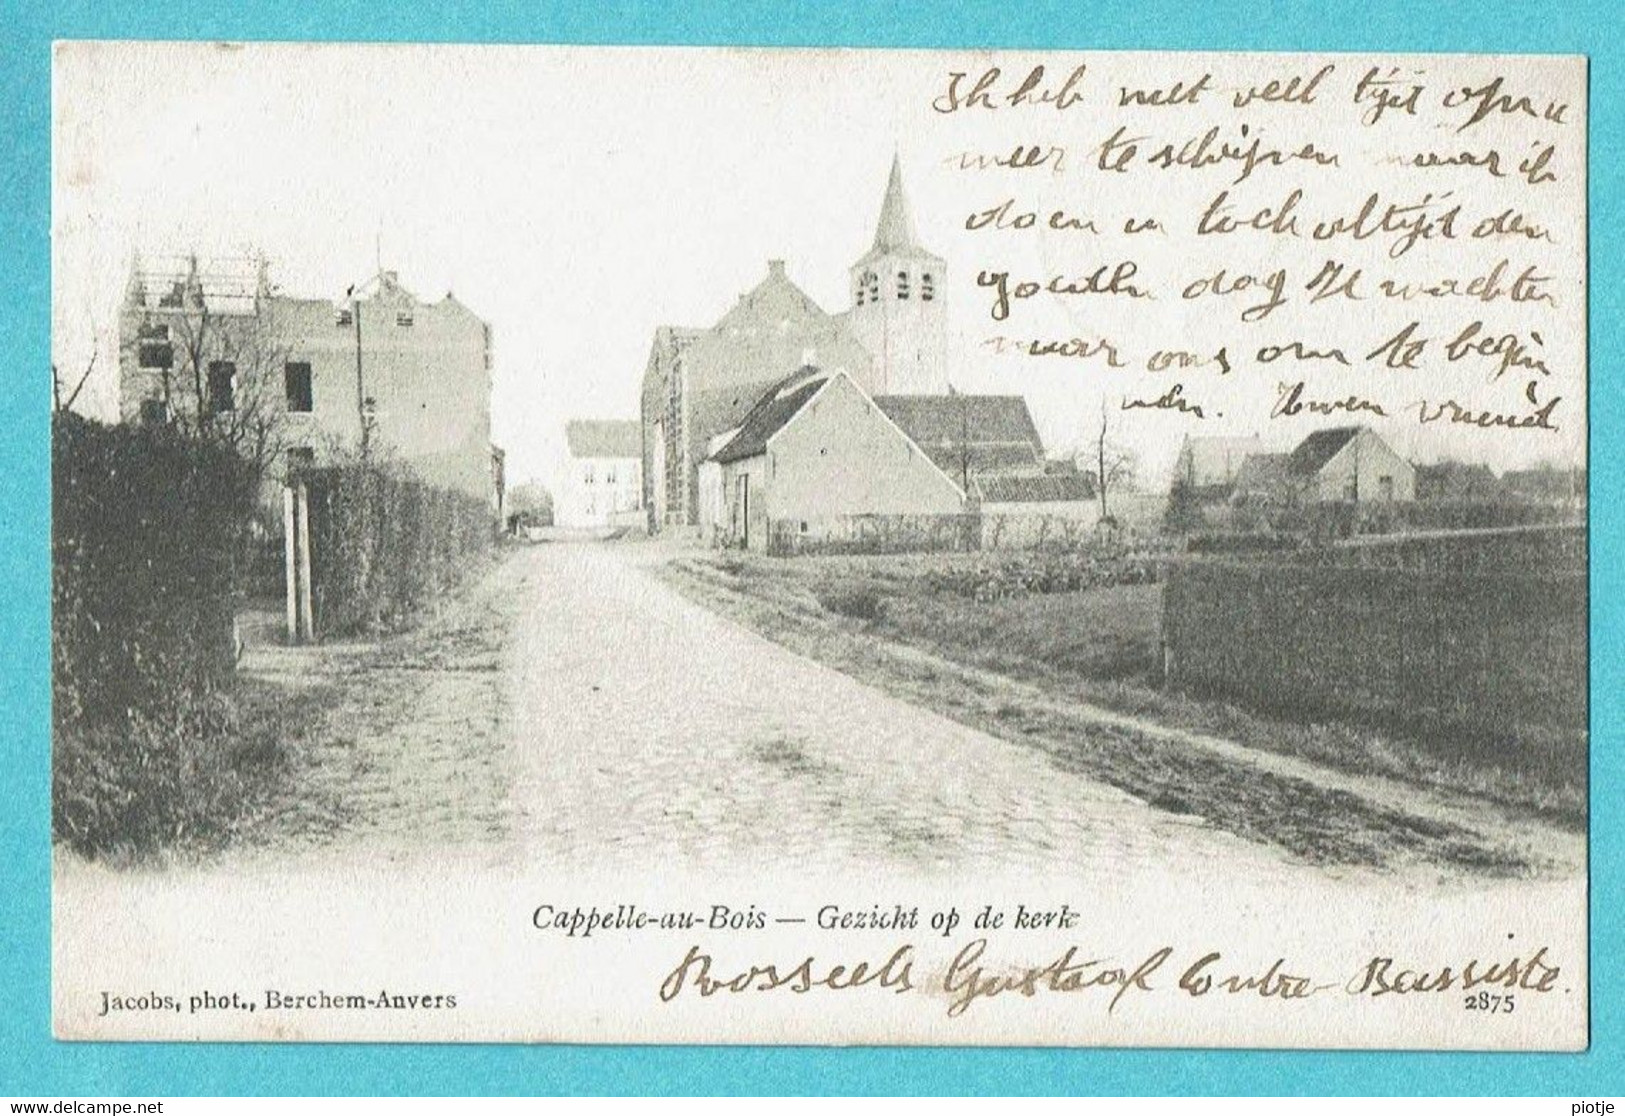 Ik heb niet veel tijt op nu
meer te schrijven maar ik
doen u toch altijd den
goeden dag Ik wachten
maar ons om te begin
nen. Uwen vriend
Cappelle-au-Bois — Gezicht op de kerk
Rosseels Gustaaf Contre-Bassiste.
Jacobs, phot., Berchem-Anvers
2875
https://www.delcampe.net
piotje